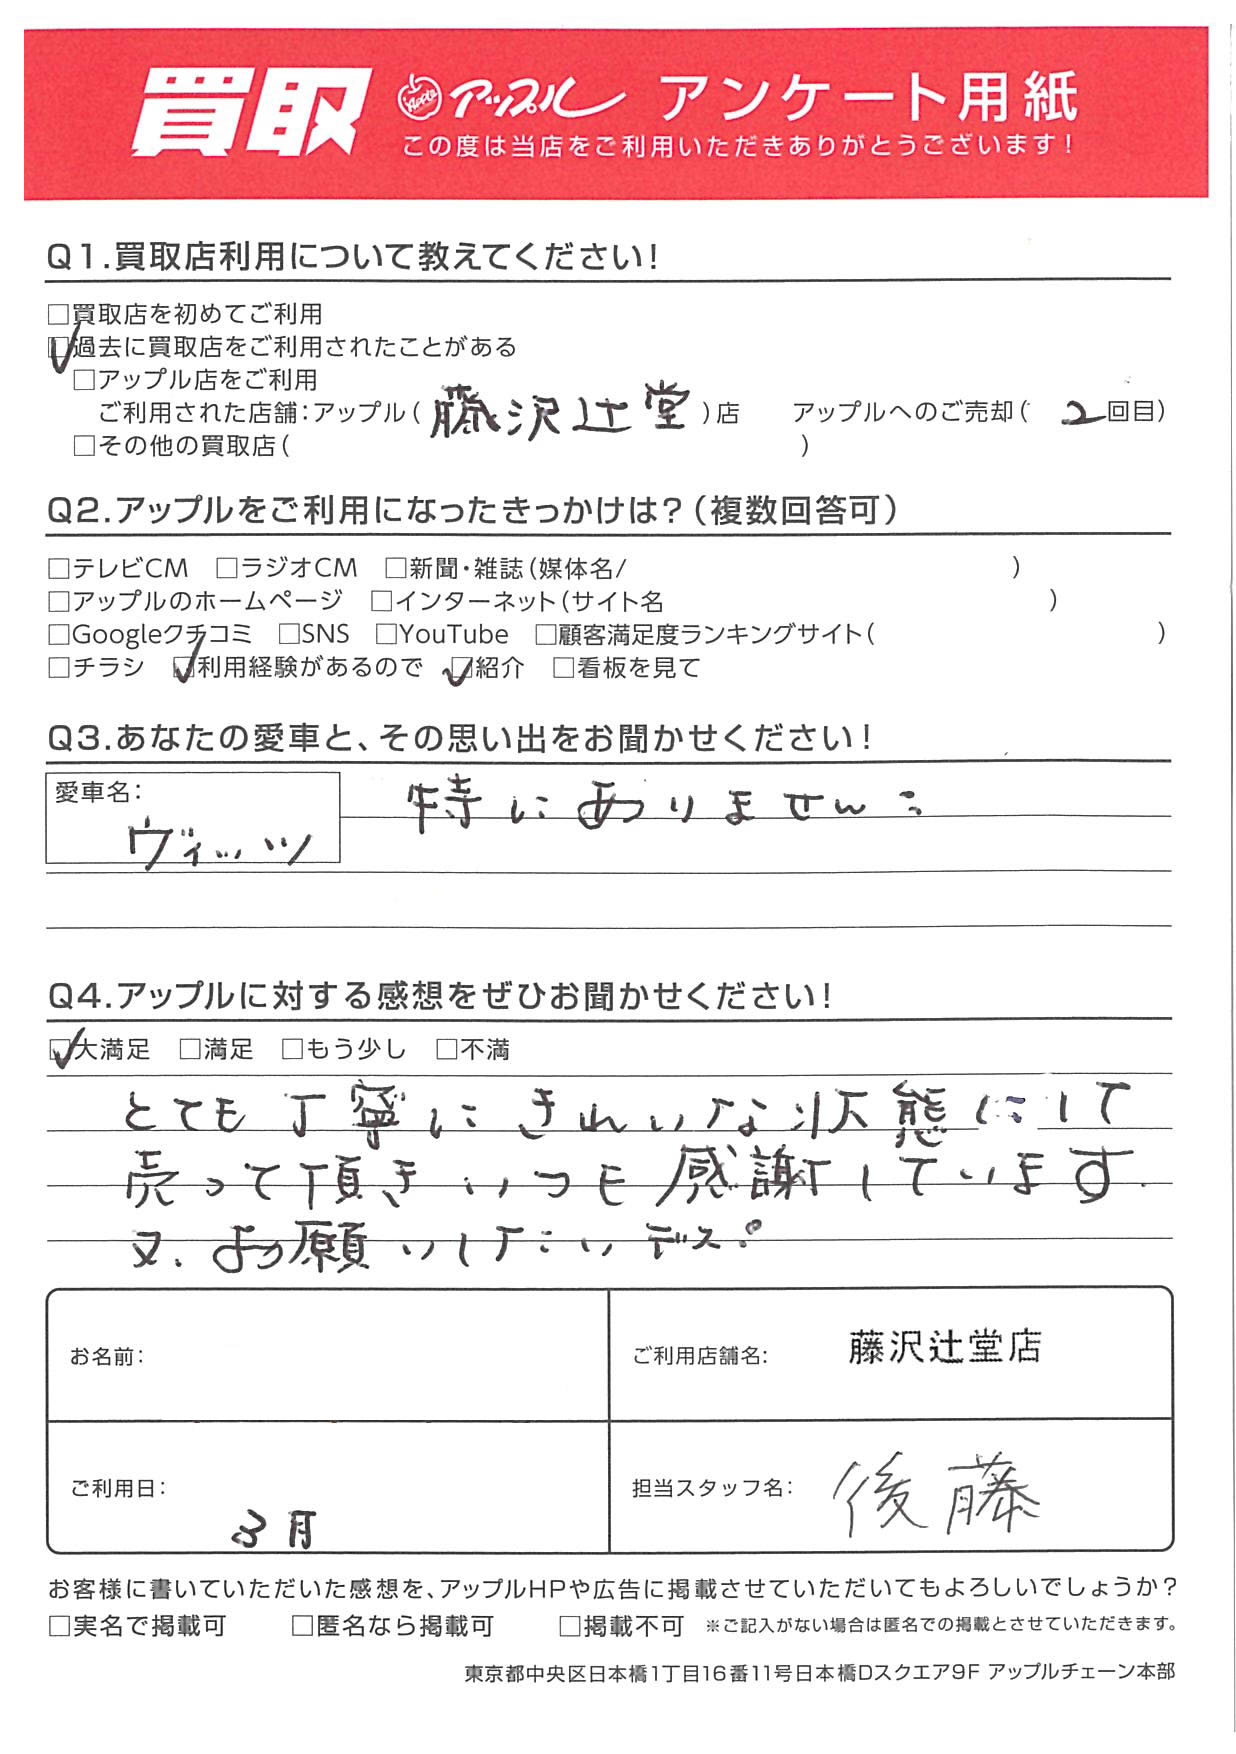 買取 Apple アップル アンケート用紙
この度は当店をご利用いただきありがとうございます！
Q1.買取店利用について教えてください！
□買取店を初めてご利用
☑過去に買取店をご利用されたことがある
□アップル店をご利用
ご利用された店舗：アップル（藤沢辻堂）店 アップルへのご売却（2回目）
□その他の買取店（ ）
Q2.アップルをご利用になったきっかけは？（複数回答可）
□テレビCM □ラジオCM □新聞・雑誌（媒体名/ ）
□アップルのホームページ □インターネット（サイト名 ）
□Googleクチコミ □SNS □YouTube □顧客満足度ランキングサイト（ ）
□チラシ ☑利用経験があるので ☑紹介 □看板を見て
Q3.あなたの愛車と、その思い出をお聞かせください！
愛車名：
ヴィッツ
特にありません
Q4.アップルに対する感想をぜひお聞かせください！
☑大満足 □満足 □もう少し □不満
とても丁寧にきれいな状態にして
売って頂きいつも感謝しています.
又、お願いしたいデス。
お名前：
ご利用店舗名： 藤沢辻堂店
ご利用日： 3月
担当スタッフ名： 後藤
お客様に書いていただいた感想を、アップルHPや広告に掲載させていただいてもよろしいでしょうか？
□実名で掲載可 □匿名なら掲載可 □掲載不可 ※ご記入がない場合は匿名での掲載とさせていただきます。
東京都中央区日本橋1丁目16番11号日本橋Dスクエア9F アップルチェーン本部